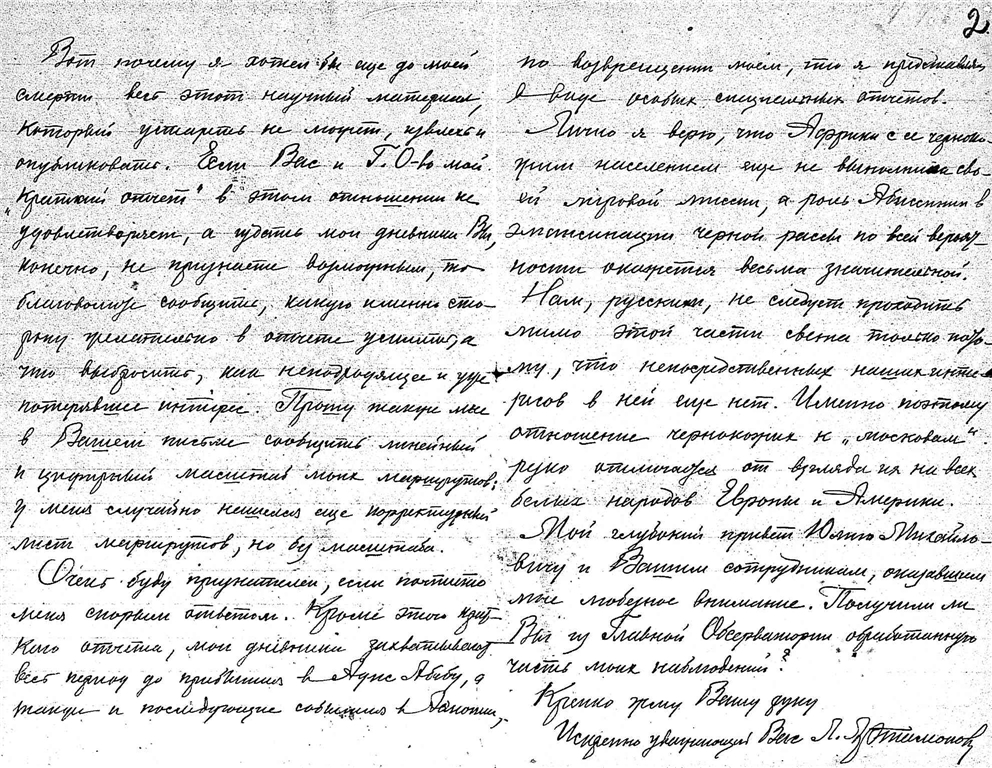 2.
Вот почему я хотел бы еще до моей
смерти весь этот научный материал,
который устареть не может, извлечь и
опубликовать. Если Вас и Г. О-во мой
"Краткий отчет" в этом отношении не
удовлетворяет, а издать мои дневники Вы,
конечно, не признаете возможным, то
благоволите сообщить, какую именно сто-
рону желательно в отчете усилить, а
что выбросить, как неподходящее и уже
потерявшее интерес. Прошу также мне
в Вашем письме сообщить линейный
и цифровый масштаб моих маршрутов;
у меня случайно нашелся еще корректурный
лист маршрутов, но без масштаба.
Очень буду признателен, если почтите
меня скорым ответом. Кроме этого крат-
кого отчета, мои дневники захватывают
весь период до прибытия в Адис Абебу, а
также и последующие события в Абиссинии,
по возвращении моем, что я представил
в виде особых специальных отчетов.
Лично я верю, что Африка с ее черноко-
жим населением еще не выполнила сво-
ей мировой миссии, а роль Абиссинии в
эмансипации черной расы по всей вероят-
ности окажется весьма значительной.
Нам, русским, не следует проходить
мимо этой части света только пото-
му, что непосредственных наших инте-
ресов в ней еще нет. Именно поэтому
отношение чернокожих к „московам"
резко отличается от взгляда их на всех
белых народов Европы и Америки.
Мой глубокий привет Юлию Михайло-
вичу и Вашим сотрудникам, оказавшим
мне любезное внимание. Получили ли
Вы из Главной Обсерватории обработанную
часть моих наблюдений?
Крепко жму Вашу руку
Искренно уважающий Вас Л. Артамонов